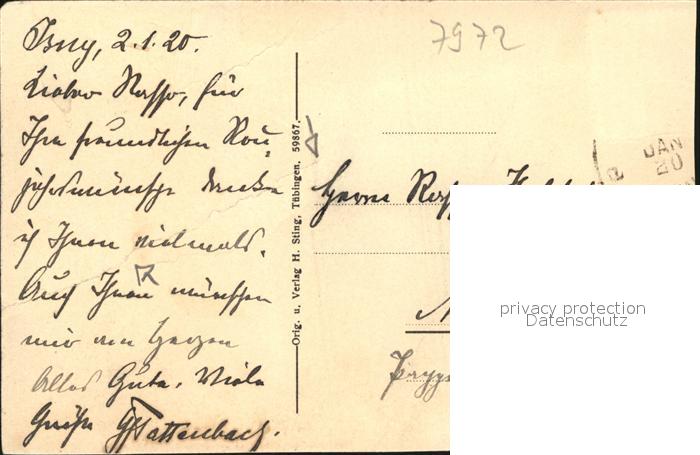 Isny, 2.1.20.
Lieber Rasso, für
Ihre freundlichen Neu-
jahrswünsche danke
ich Ihnen vielmals.
Auch Ihnen wünschen
wir von Herzen
Alles Gute. Viele
Grüße GHattenbach.
Orig. u. Verlag H. Sting, Tübingen. 59867.
7972
JAN
20
Herrn
privacy protection
Datenschutz